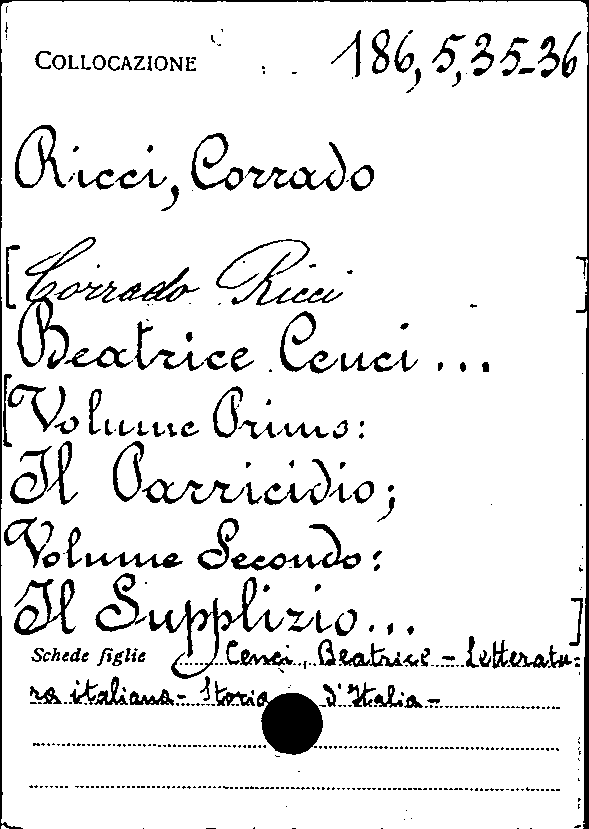 COLLOCAZIONE 186, 5, 35-36
Ricci, Corrado
[Corrado Ricci]
Beatrice Cenci ...
[Volume Primo:
Il Parricidio;
Volume Secondo:
Il Supplizio...]
Schede figlie Cenci, Beatrice - Letteratu=
ra italiana - Storia d'Italia -